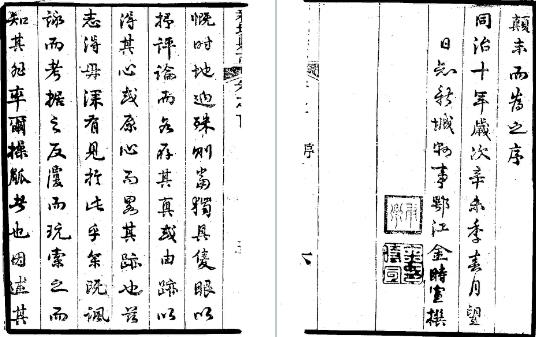 慨時地迥殊則當獨具隻眼以
抒評論而各存其真或由跡以
得其心或原心而畧其跡也茲
志得毋深有見於此乎余既諷
詠而考據之反覆而玩索之而
知其非率爾操觚者也因述其
顛末而為之序
同治十年歲次辛未季春月望
日知新城縣事鄂江金時宣撰
序 六